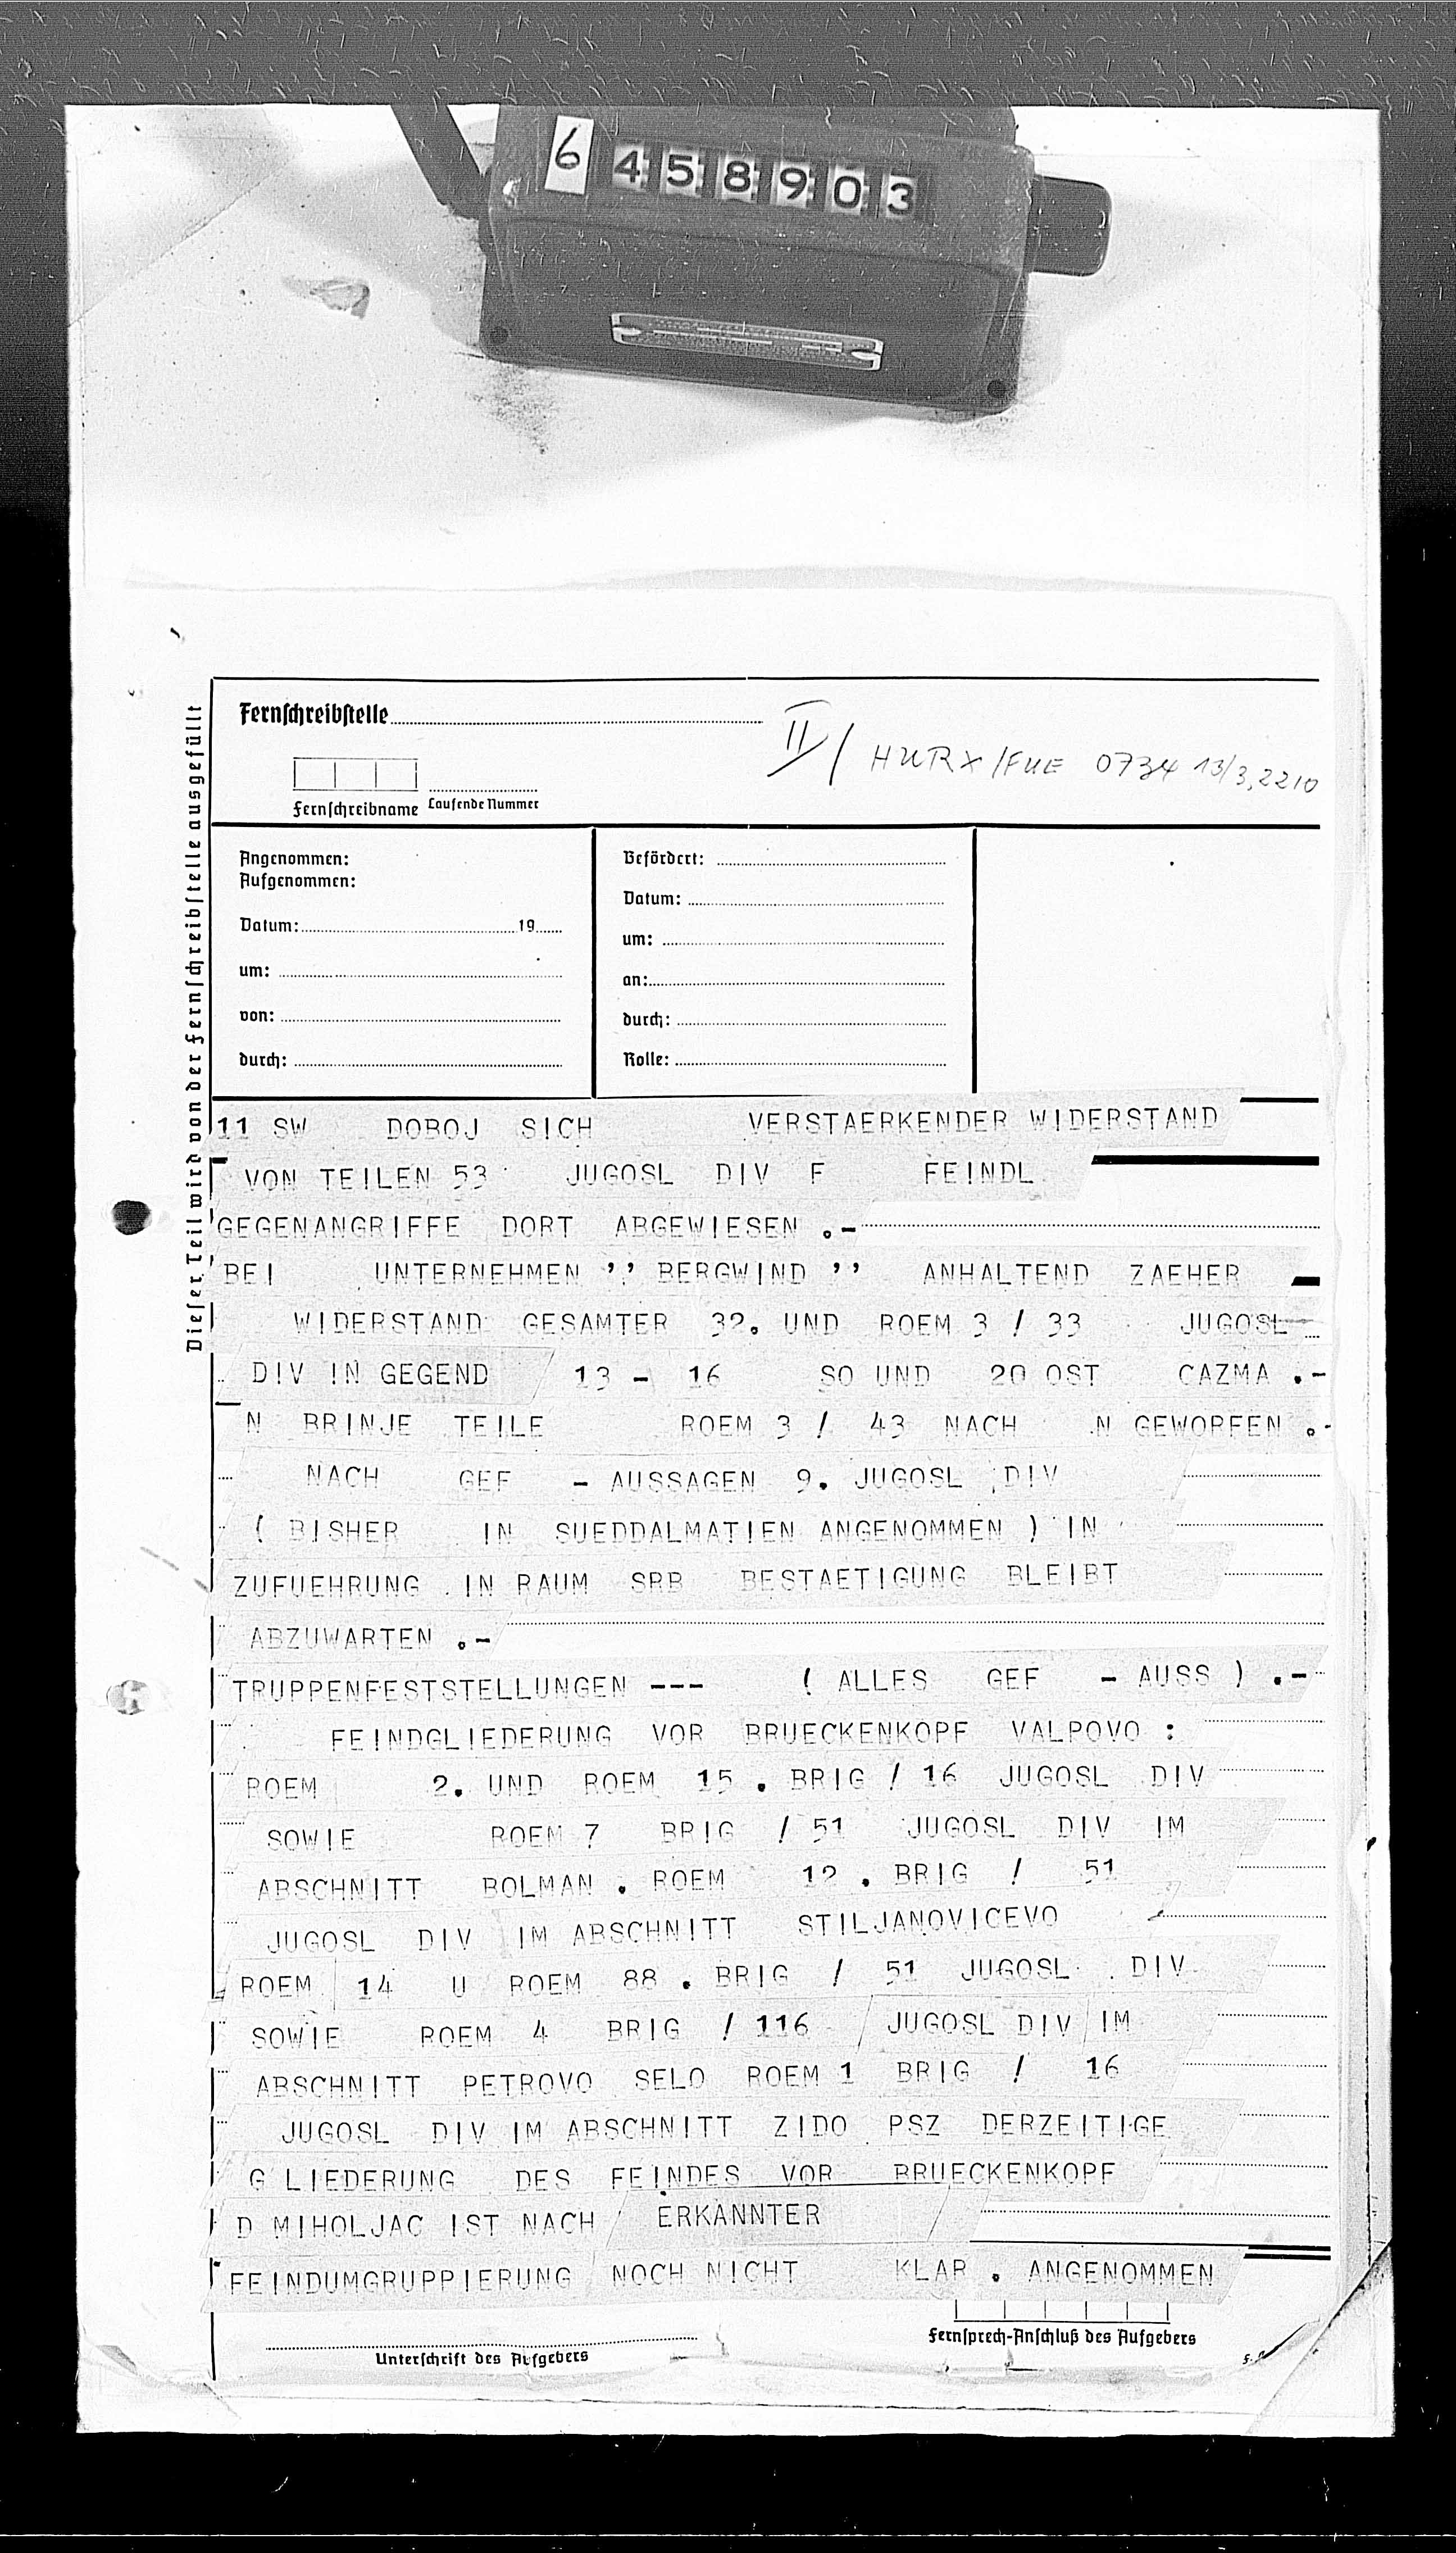 6 458903
Fernschreibstelle
II / HURX/FUE 0734 13/3, 2210
Fernschreibname Laufende Nummer
Angenommen:
Aufgenommen:
Datum: 19
um:
von:
durch:
Befördert:
Datum:
um:
an:
durch:
Rolle:
Dieser Teil wird von der Fernschreibstelle ausgefüllt
11 SW DOBOJ SICH VERSTAERKENDER WIDERSTAND
VON TEILEN 53 JUGOSL DIV F FEINDL
GEGENANGRIFFE DORT ABGEWIESEN .-
BEI UNTERNEHMEN '' BERGWIND '' ANHALTEND ZAEHER
WIDERSTAND GESAMTER 32. UND ROEM 3 / 33 JUGOSL
DIV IN GEGEND 13 - 16 SO UND 20 OST CAZMA .-
N BRINJE TEILE ROEM 3 / 43 NACH N GEWORFEN .-
NACH GEF - AUSSAGEN 9. JUGOSL DIV
( BISHER IN SUEDDALMATIEN ANGENOMMEN ) IN
ZUFUEHRUNG IN RAUM SRB BESTAETIGUNG BLEIBT
ABZUWARTEN .-
TRUPPENFESTSTELLUNGEN --- ( ALLES GEF - AUSS ) .-
FEINDGLIEDERUNG VOR BRUECKENKOPF VALPOVO :
ROEM 2. UND ROEM 15 . BRIG / 16 JUGOSL DIV
SOWIE ROEM 7 BRIG / 51 JUGOSL DIV IM
ABSCHNITT BOLMAN . ROEM 12 . BRIG / 51
JUGOSL DIV IM ABSCHNITT STILJANOVICEVO
ROEM 14 U ROEM 88 . BRIG / 51 JUGOSL DIV
SOWIE ROEM 4 BRIG / 116 JUGOSL DIV IM
ABSCHNITT PETROVO SELO ROEM 1 BRIG / 16
JUGOSL DIV IM ABSCHNITT ZIDO PSZ DERZEITIGE
G LIEDERUNG DES FEINDES VOR BRUECKENKOPF
D MIHOLJAC IST NACH ERKANNTER
FEINDUMGRUPPIERUNG NOCH NICHT KLAR . ANGENOMMEN
Unterschrift des Aufgebers
Fernsprech-Anschluß des Aufgebers